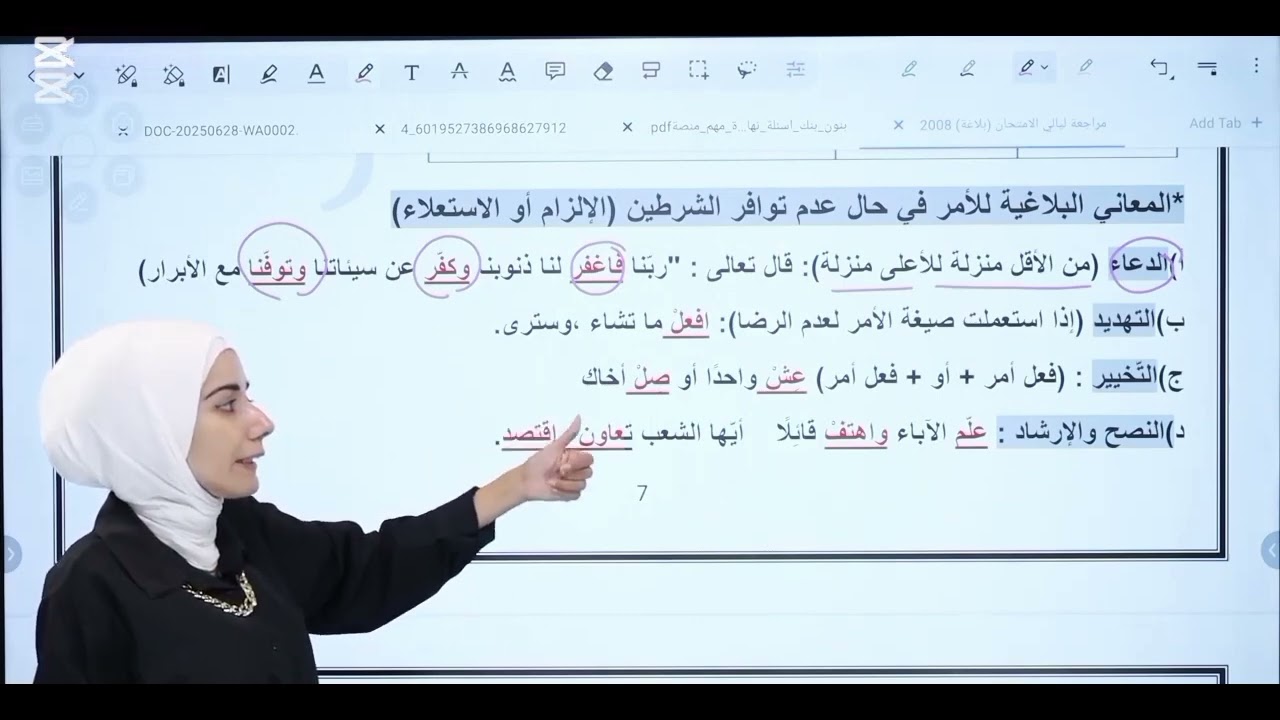 DOC-20250628-WA0002.
4_6019527386968627912
بنون_بنك_اسئلة_نها...ة_مهم_منصةpdf
مراجعة ليالي الامتحان (بلاغة) 2008
Add Tab +
*المعاني البلاغية للأمر في حال عدم توافر الشرطين (الإلزام أو الاستعلاء)
ا)الدعاء (من الأقل منزلة للأعلى منزلة): قال تعالى : "ربّنا فاغفر لنا ذنوبنا وكفّر عن سيئاتنا وتوفّنا مع الأبرار)
ب)التهديد (إذا استعملت صيغة الأمر لعدم الرضا): افعلْ ما تشاء ،وسترى.
ج)التّخيير : (فعل أمر + أو + فعل أمر) عِشْ واحدًا أو صلْ أخاك
د)النصح والإرشاد : علّم الآباء واهتفْ قائلًا أيّها الشعب تعاون اقتصد.
7